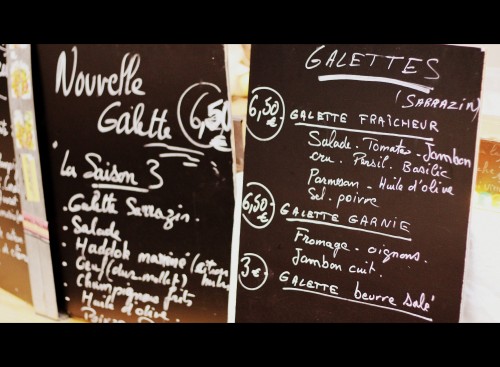 Nouvelle
Galette
6,50
"La Saison 3
Galette Sarrazin.
• Salade
• Haddok mariné (citron
huile)
• Oeuf (dur-mollet)
• Champignons frits
• Huile d'olive.
GALETTES
(SARRAZIN)
6,50
€
GALETTE FRAÎCHEUR
Salade. Tomates. Jambon
cru. Persil. Basilic
Parmesan - Huile d'olive
Sel. poivre
6,50
€
GALETTE GARNIE
Fromage. oignons.
Jambon cuit.
3€
GALETTE beurre salé